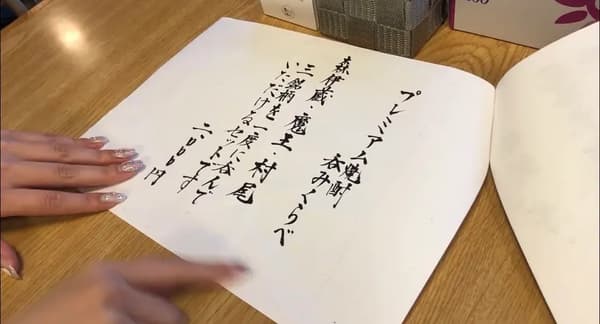 プレミアム焼酎
呑みくらべ
森伊蔵・魔王・村尾
三銘柄を一度に呑んで
いただけるセットです
二、〇〇〇円